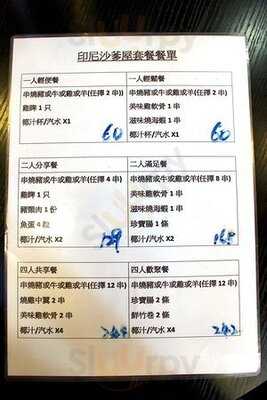 印尼沙爹屋套餐餐單
一人輕便餐
串燒豬或牛或雞或羊(任擇 2 串))
雞脾 1 只
椰汁杯/汽水 X1
60
一人輕鬆餐
串燒豬或牛或雞或羊(任擇 2 串)
美味雞軟骨 1 串
滋味燒海蝦 1 串
椰汁杯/汽水 X1
60
二人分享餐
串燒豬或牛或雞或羊(任擇 4 串)
雞脾 1 只
豬頸肉 1 份
魚蛋 4 粒
椰汁/汽水 X2
129
二人滿足餐
串燒豬或牛或雞或羊(任擇 8 串)
美味雞軟骨 1 串
滋味燒海蝦 1 串
珍寶腸 2 條
椰汁/汽水 X2
四人共享餐
串燒豬或牛或雞或羊(任擇 12 串)
燒雞中翼 2 串
美味雞軟骨 2 串
椰汁/汽水 X4
四人歡聚餐
串燒豬或牛或雞或羊(任擇 12 串)
珍寶腸 2 條
鮮竹卷 2 條
椰汁/汽水 X4